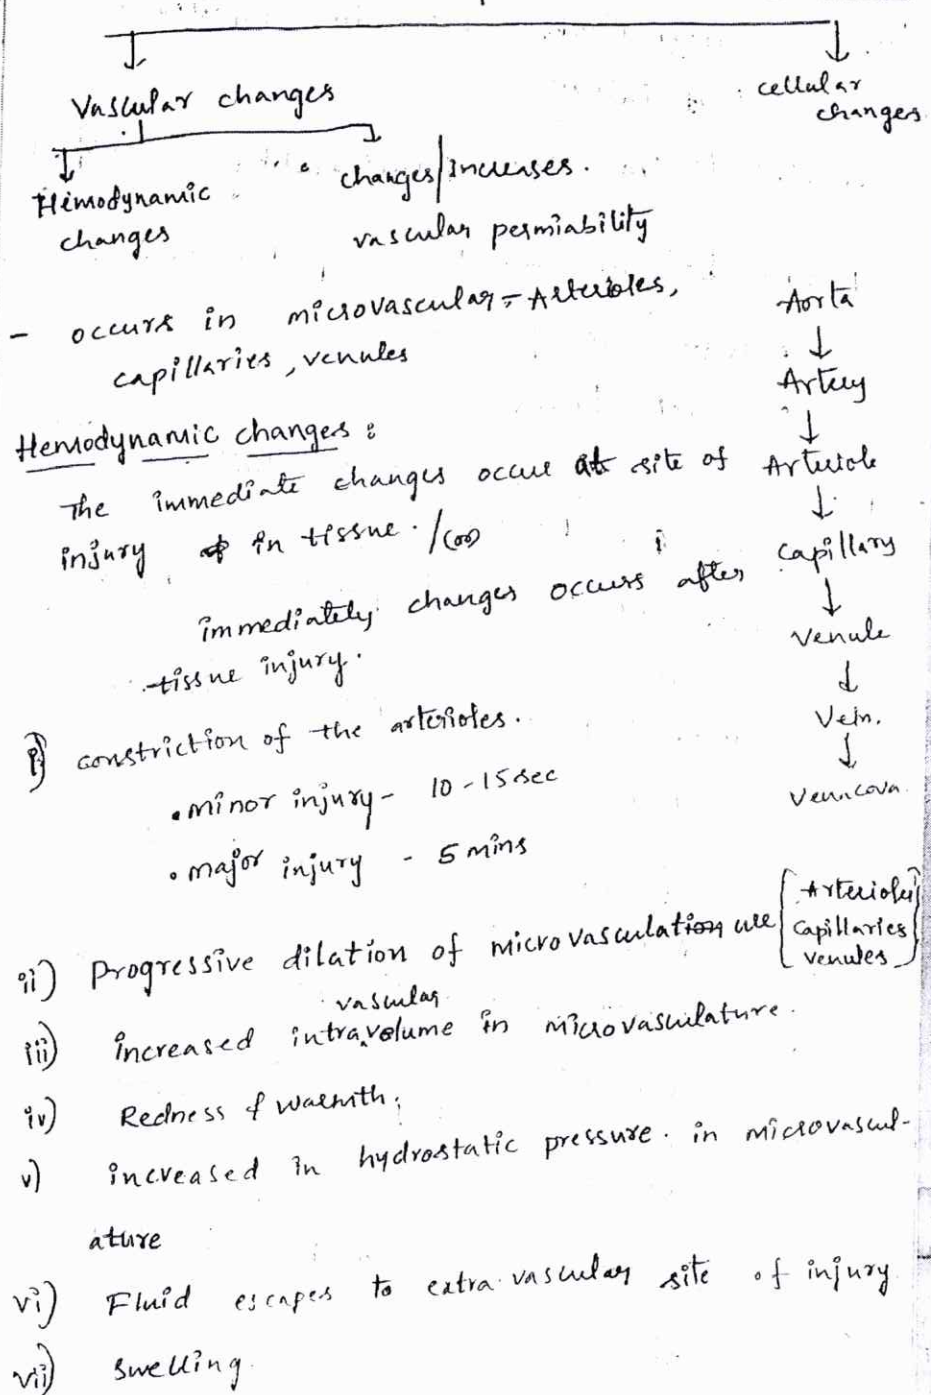 Vascular changes
cellular
changes
Hemodynamic
changes
changes/Increases.
vascular permiability
- occurs in microvascular = Arterioles,
capillaries, venules
Aorta
↓
Artery
↓
Arteriole
↓
Capillary
↓
Venule
↓
Vein.
↓
Venacava
Hemodynamic changes :
The immediate changes occur at site of
injury in tissue. / (or)
immediately changes occurs after
tissue injury.
i) constriction of the arterioles.
• minor injury - 10 - 15 sec
• major injury - 5 mins
ii) Progressive dilation of microvasculation like [Arterioles
Capillaries
venules]
vascular
iii) increased intra^volume in microvasculature.
iv) Redness & warmth.
v) increased in hydrostatic pressure. in microvascul-
ature
vi) Fluid escapes to extra vascular site of injury
vii) swelling.